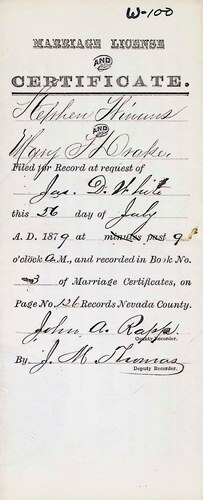 W-100
MARRIAGE LICENSE
AND
CERTIFICATE.
Stephen
AND
Mary Drake.
Filed for Record at request of
Jas. D. White
this 26 day of July
A. D. 1879 at minutes past 9
o'clock A M., and recorded in Book No.
3 of Marriage Certificates, on
Page No. 126 Records Nevada County.
John A. Rapp
County Recorder.
By J. M. Thomas
Deputy Recorder.